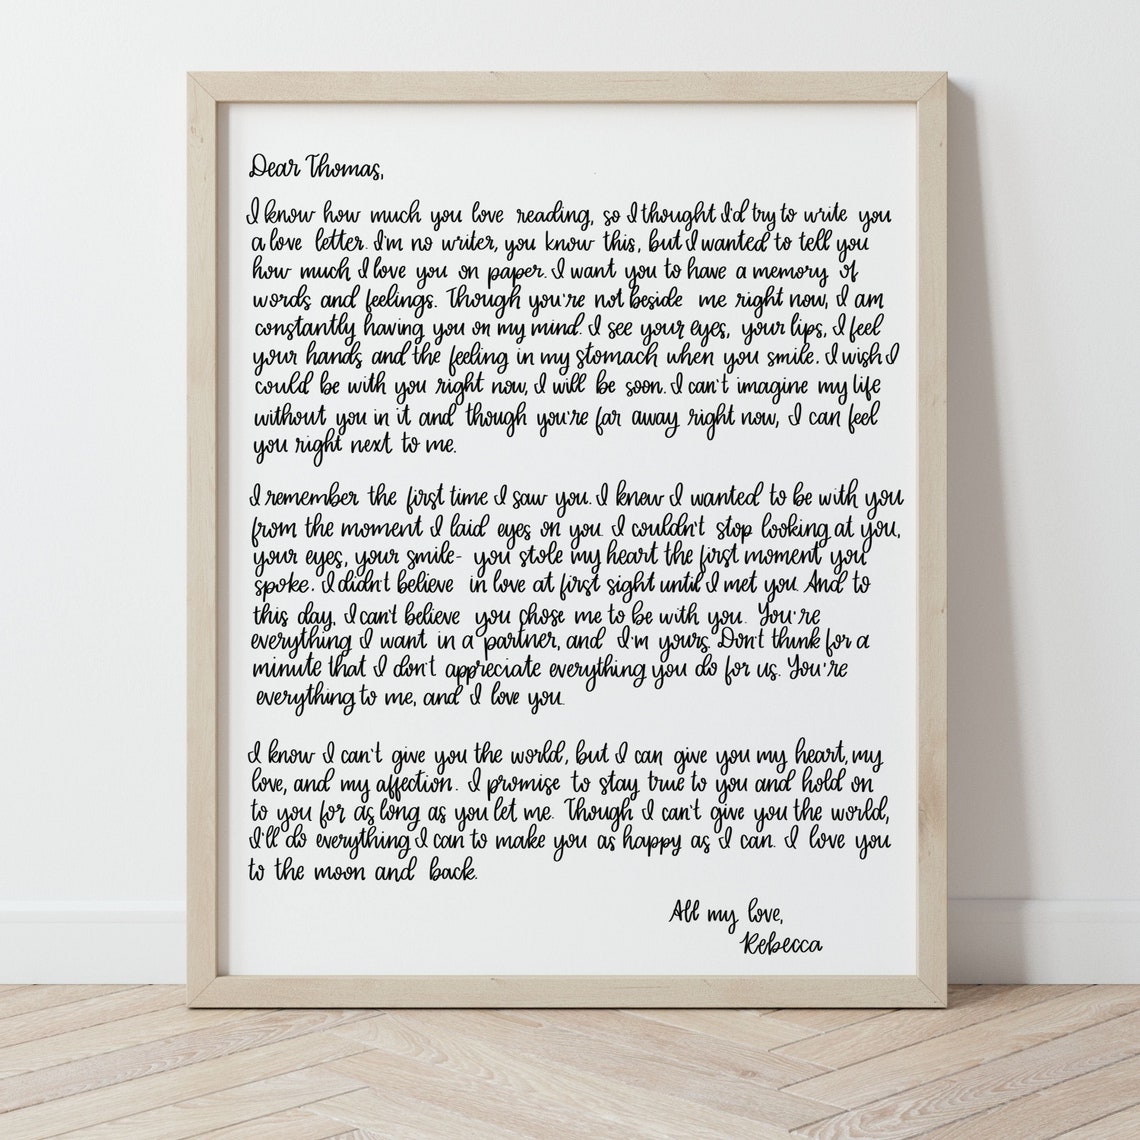 Dear Thomas,
I know how much you love reading, so I thought I'd try to write you
a love letter. I'm no writer, you know this, but I wanted to tell you
how much I love you on paper. I want you to have a memory of
words and feelings. Though you're not beside me right now, I am
constantly having you on my mind. I see your eyes, your lips, I feel
your hands and the feeling in my stomach when you smile. I wish I
could be with you right now, I will be soon. I can't imagine my life
without you in it and though you're far away right now, I can feel
you right next to me.
I remember the first time I saw you. I knew I wanted to be with you
from the moment I laid eyes on you. I couldn't stop looking at you,
your eyes, your smile- you stole my heart the first moment you
spoke. I didn't believe in love at first sight until I met you. And to
this day, I can't believe you chose me to be with you. You're
everything I want in a partner, and I'm yours. Don't think for a
minute that I don't appreciate everything you do for us. You're
everything to me, and I love you.
I know I can't give you the world, but I can give you my heart, my
love, and my affection. I promise to stay true to you and hold on
to you for as long as you let me. Though I can't give you the world,
I'll do everything I can to make you as happy as I can. I love you
to the moon and back.
All my love,
Rebecca